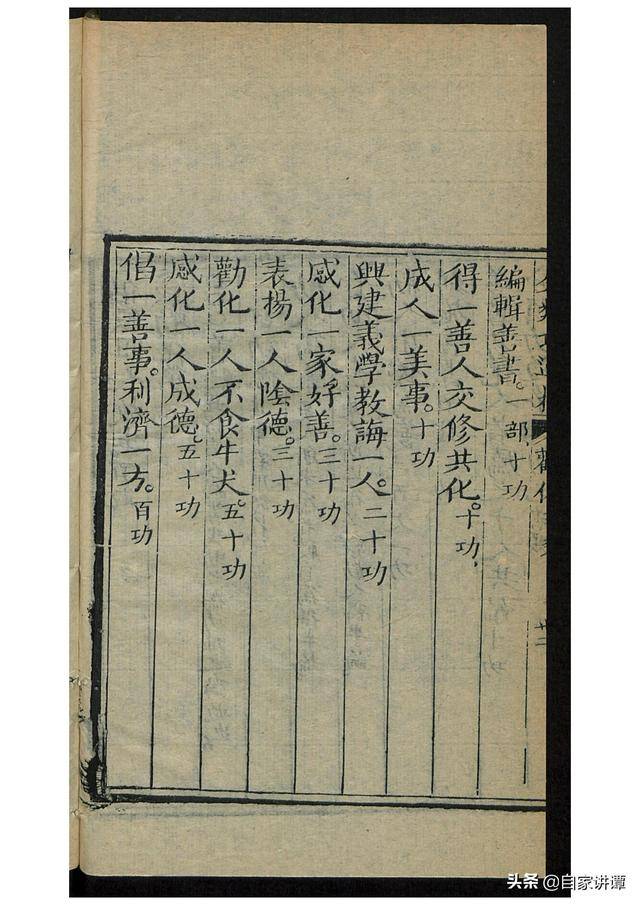 編輯善書。一部十功
得一善人交修共化。十功
成人一美事。十功
興建義學教誨一人。二十功
感化一家好善。三十功
表揚一人陰德。三十功
勸化一人不食牛犬。五十功
感化一人成德。五十功
倡一善事。利濟一方。百功
头条 @自家讲谭